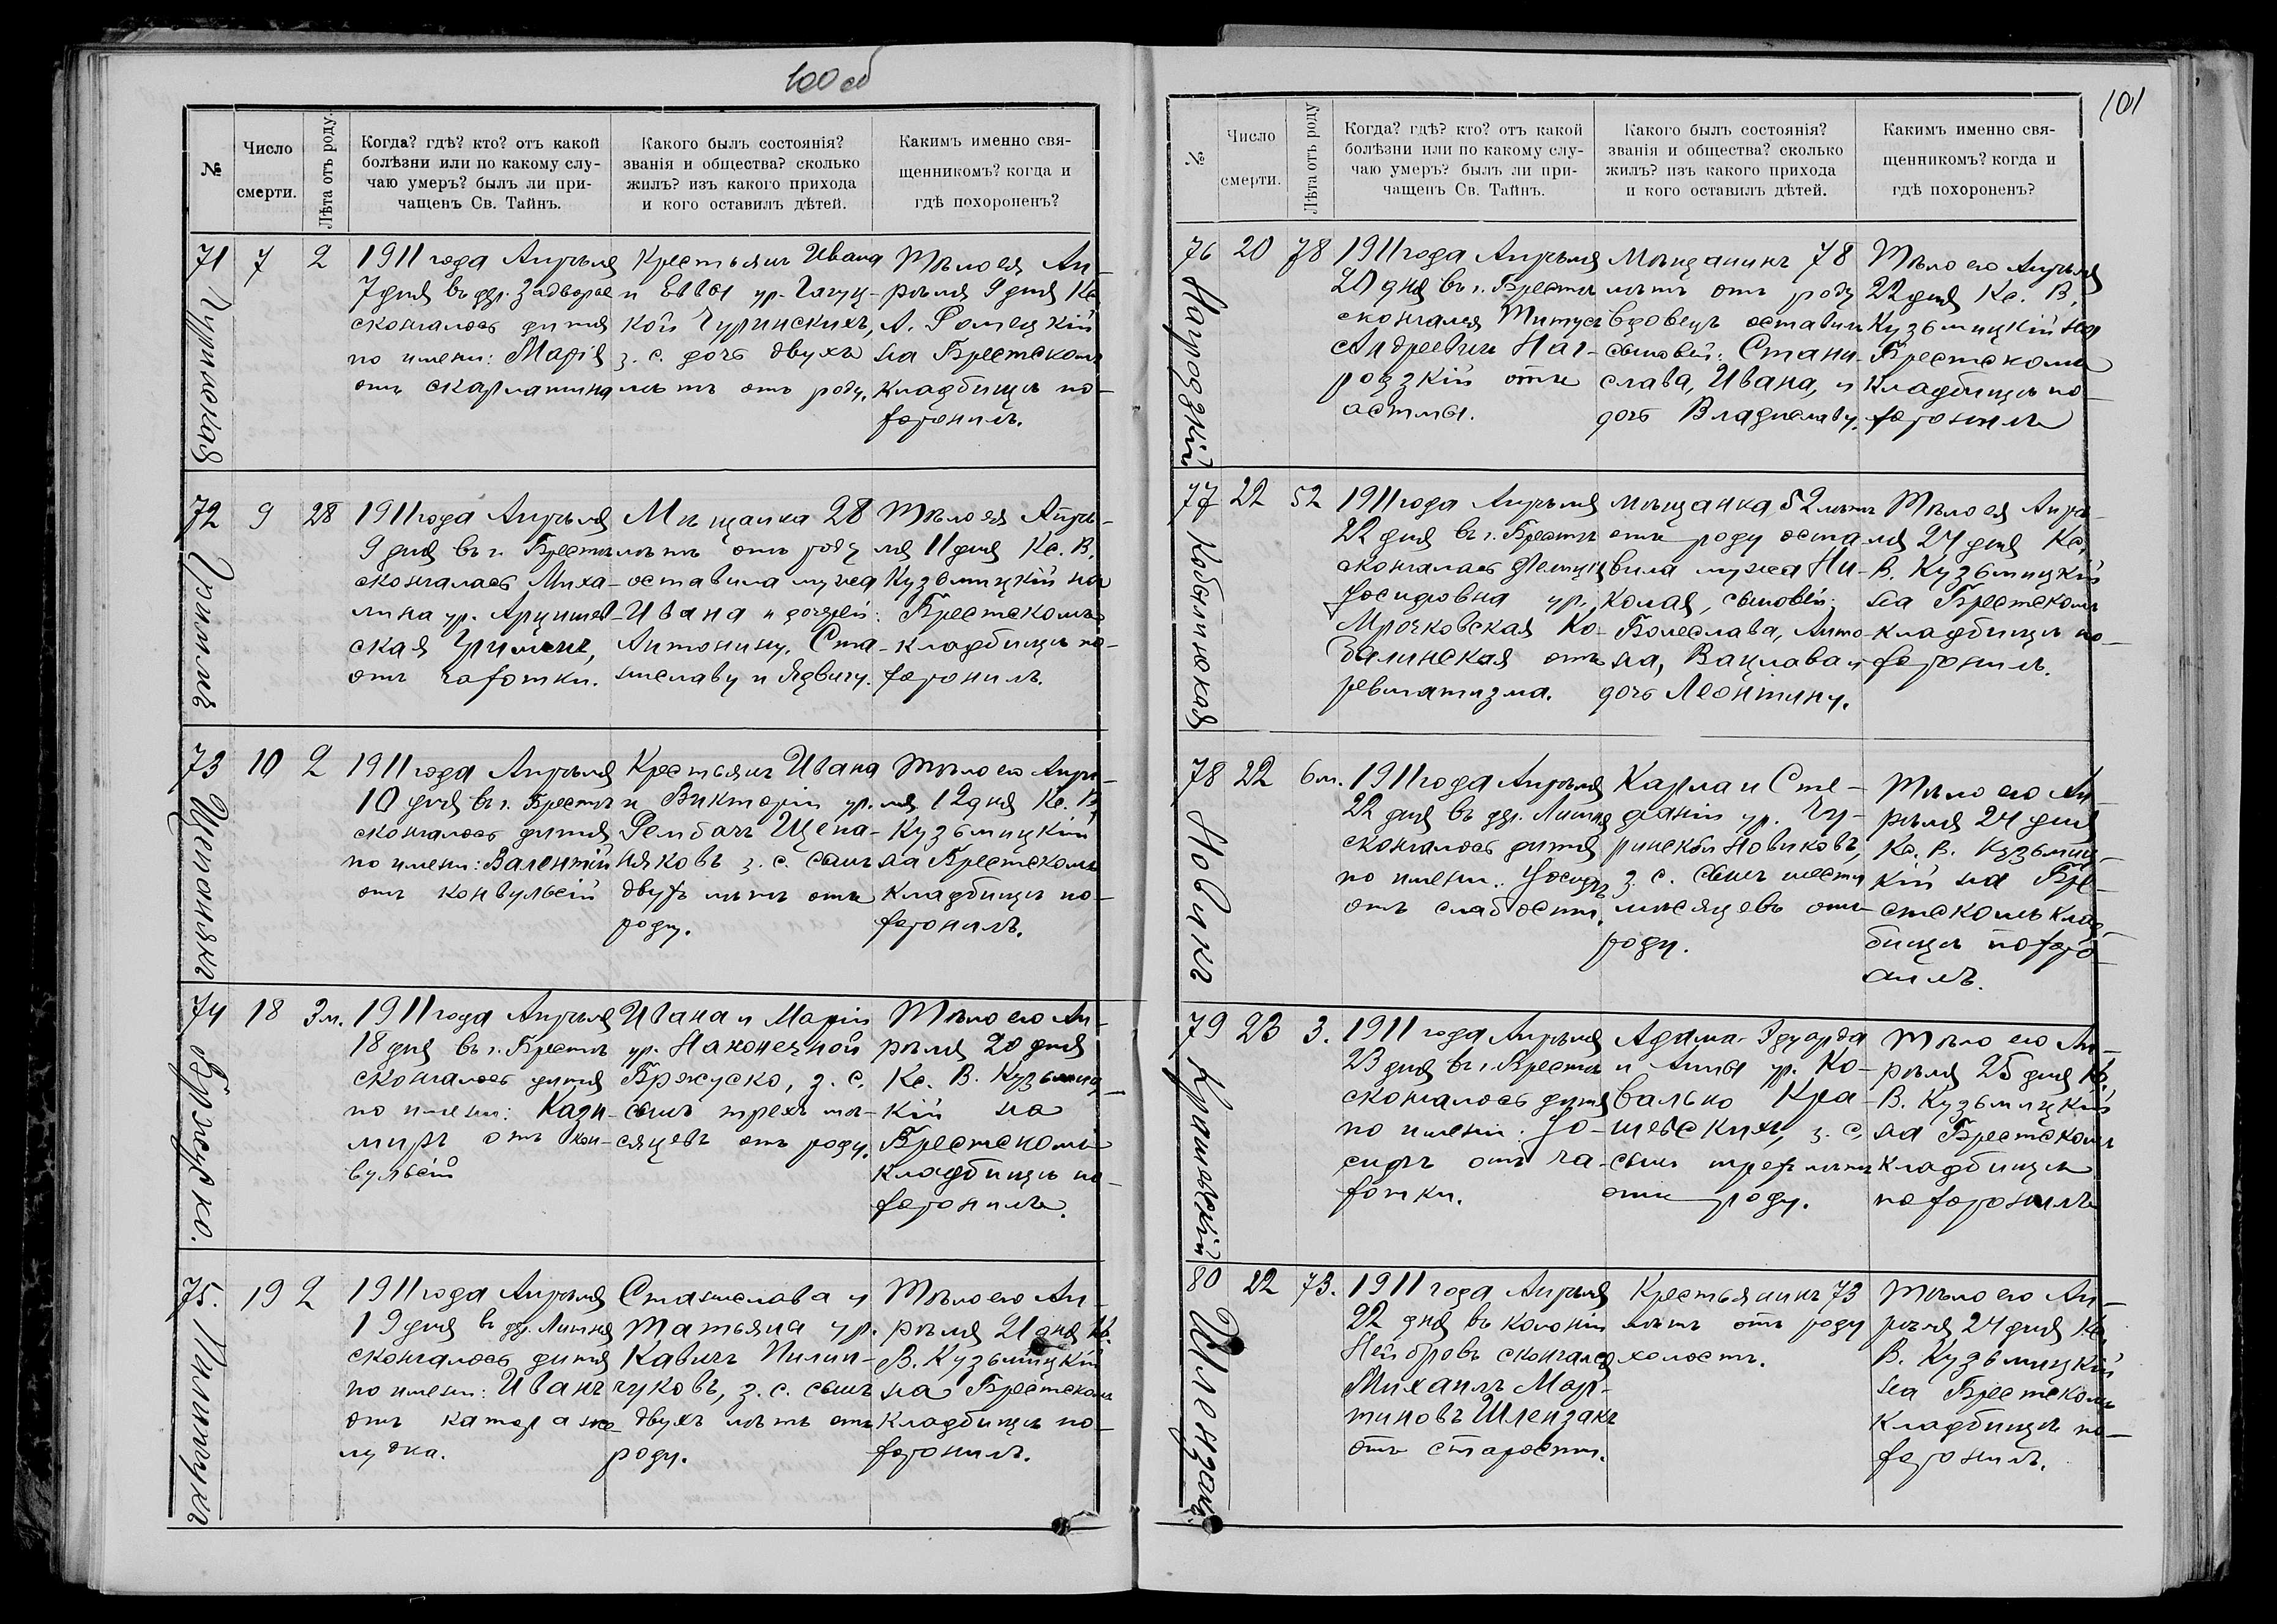 100 об
№
Число
смерти.
Лѣта отъ роду.
Когда? гдѣ? кто? отъ какой
болѣзни или по какому слу-
чаю умеръ? былъ ли при-
чащенъ Св. Тайнъ.
Какого былъ состоянія?
званія и общества? сколько
жилъ? изъ какого прихода
и кого оставилъ дѣтей.
Какимъ именно свя-
щенникомъ? когда и
гдѣ похороненъ?
71
Чуринская
7
2
1911 года Апрѣля
7 дня въ дер. Задворце
скончалось дитя
по имени: Марія
отъ скарлатина
Крестьянъ Ивана
и Еввы ур.
кой Чуринскихъ,
з. с. дочь двухъ
лѣтъ отъ роду.
Тѣло ея Ап-
рѣля 9 дня Кс.
А.
на Брестскомъ
кладбищѣ по-
хоронилъ.
72
Гриммъ
9
28
1911 года Апрѣля
9 дня въ г. Брестѣ
скончалась Миха-
лина ур. Арцишев-
ская Гриммъ,
отъ чахотки.
Мѣщанка 28
лѣтъ отъ роду
оставила мужа
Ивана и дочерей:
Антонину, Ста-
ниславу и Ядвигу.
Тѣло ея Апрѣ-
ля 11 дня Кс. В.
Кузьмицкій на
Брестскомъ
кладбищѣ по-
хоронилъ.
73
Щепанякъ
10
2
1911 года Апрѣля
10 дня въ г. Брестѣ
скончалось дитя
по имени: Валентій
отъ конвульсій
Крестьянъ Ивана
и Викторіи ур.
Рембачъ Щепа-
няковъ з. с. сынъ
двухъ лѣтъ отъ
роду.
Тѣло его Апрѣ-
ля 12 дня Кс. В.
Кузьмицкій
на Брестскомъ
кладбищѣ по-
хоронилъ.
74
Бржуско.
18
3 м.
1911 года Апрѣля
18 дня въ г. Брестѣ
скончалось дитя
по имени: Кази-
миръ отъ кон-
вульсій
Ивана и Маріи
ур. Наконечной
Бржуско, з. с.
сынъ трехъ мѣ-
сяцевъ отъ роду.
Тѣло его Ап-
рѣля 20 дня
Кс. В. Кузьмиц-
кій на
Брестскомъ
кладбищѣ по-
хоронилъ.
75.
Пилипчукъ
19
2
1911 года Апрѣля
19 дня въ др. Литня
скончалось дитя
по имени: Иванъ
отъ катара же-
лудка.
Станислава и
Татьяна ур.
Кавичъ Пилип-
чуковъ, з. с. сынъ
двухъ лѣтъ отъ
роду.
Тѣло его Ап-
рѣля 21 дня Кс.
В. Кузьмицкій
на Брестскомъ
кладбищѣ по-
хоронилъ.
101
№
Число
смерти.
Лѣта отъ роду
Когда? гдѣ? кто? отъ какой
болѣзни или по какому слу-
чаю умеръ? былъ ли при-
чащенъ Св. Тайнъ.
Какого былъ состоянія?
званія и общества? сколько
жилъ? изъ какого прихода
и кого оставилъ дѣтей.
Какимъ именно свя-
щенникомъ? когда и
гдѣ похороненъ?
76
Нагродзкій
20
78
1911 года Апрѣля
20 дня въ г. Брестѣ
скончался Титусъ
Андреевичъ Наг-
родзкій отъ
астмы.
Мѣщанинъ 78
лѣтъ отъ роду
вдовецъ оставилъ
сыновей: Стани-
слава, Ивана, и
дочь Владиславу.
Тѣло его Апрѣля
22 дня Кс. В.
Кузьмицкій на
Брестскомъ
кладбищѣ по-
хоронилъ
77
Кобылинская
22
52
1911 года Апрѣля
22 дня въ г. Брестѣ
скончалась
Іосифовна ур.
Мрочковская Ко-
былинская отъ
ревматизма.
Мѣщанка, 52 лѣтъ
отъ роду оста-
вила мужа Ни-
колая, сыновей:
Болеслава, Анто-
на, Вацлава и
дочь Леонтину.
Тѣло ея Апрѣ-
ля 24 дня Кс.
В. Кузьмицкій
на Брестскомъ
кладбищѣ по-
хоронилъ.
78
Новикъ
22
6 м.
1911 года Апрѣля
22 дня въ др. Литня
скончалось дитя
по имени: Іосифъ
отъ слабости.
Карла и Сте-
фаніи ур. Чу-
ринской Новиковъ,
з. с. сынъ шести
мѣсяцевъ отъ
роду.
Тѣло его Ап-
рѣля 24 дня
Кс. В. Кузьмиц-
кій на Бре-
стскомъ клад-
бищѣ похоро-
нилъ.
79
Крашевскій
23
3.
1911 года Апрѣля
23 дня въ г. Брестѣ
скончалось дитя
по имени: Іо-
сифъ отъ ча-
хотки.
Адама-Эдуарда
и Анны ур. Ко-
валько Кра-
шевскихъ, з. с.
сынъ трехъ лѣтъ
отъ роду.
Тѣло его Ап-
рѣля 25 дня Кс.
В. Кузьмицкій
на Брестскомъ
кладбищѣ
похоронилъ
80
Шлензакъ
22
73.
1911 года Апрѣля
22 дня въ колоніи
Нейдровъ скончался
Михаилъ Мар-
тиновъ Шлензакъ
отъ старости.
Крестьянинъ 73
лѣтъ отъ роду
холостъ.
Тѣло его Ап-
рѣля 24 дня Кс.
В. Кузьмицкій
на Брестскомъ
кладбищѣ по-
хоронилъ.